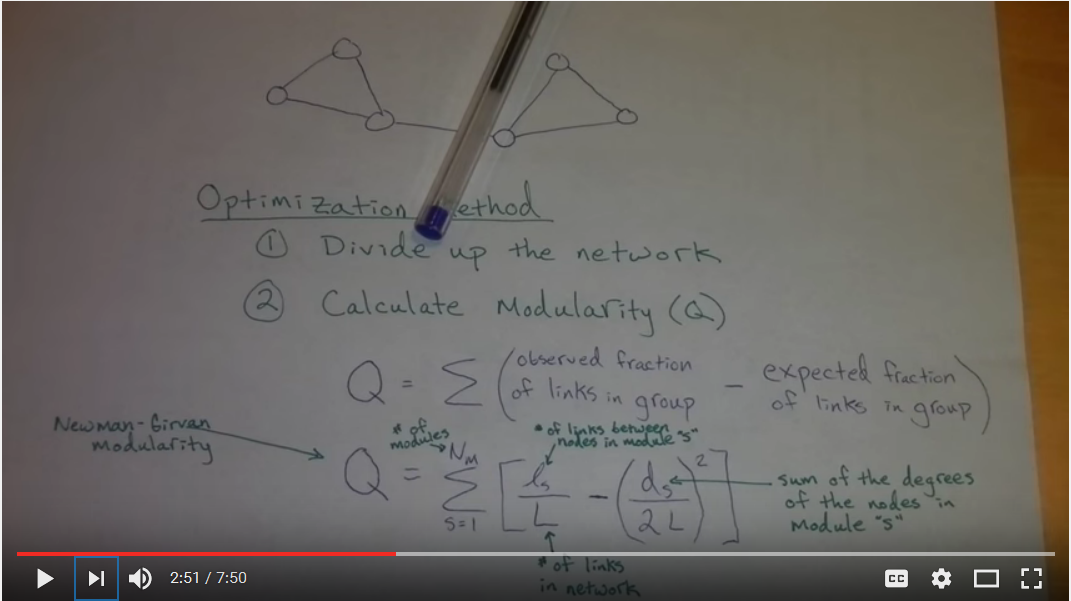 Optimization Method
① Divide up the network
② Calculate Modularity (Q)
Q = Σ (observed fraction of links in group − expected fraction of links in group)
Newman-Girvan modularity
# of modules
# of links between nodes in module "s"
Q = Σ s=1 Nm [ ls/L − (ds/2L)² ]
sum of the degrees of the nodes in module "s"
# of links in network
2:51 / 7:50
CC